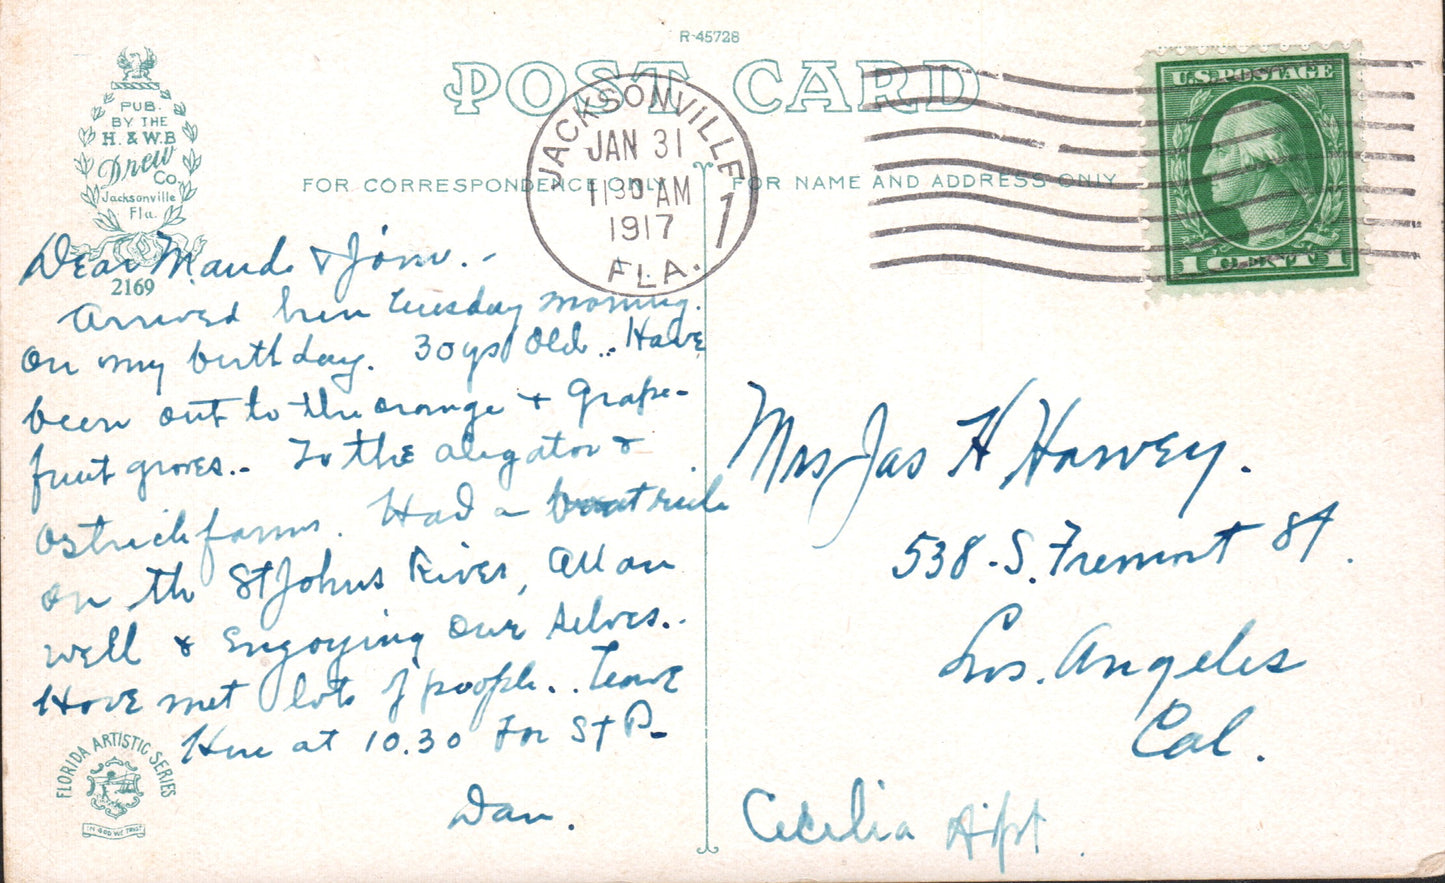 R-45728
POST CARD
PUB.
BY THE
H. & W.B
Drew
Co.
Jacksonville
Fla.
2169
FOR CORRESPONDENCE ONLY
FOR NAME AND ADDRESS ONLY
JACKSONVILLE
JAN 31
11 30 AM
1917
FLA.
1
U.S. POSTAGE
1 CENT 1
Dear Maude & Jim.-
Arrived here Tuesday morning.
On my birthday. 30 yrs old.. Have
been out to the orange & grape-
fruit groves.. To the aligator &
Ostrich farms. Had a boat ride
on the St Johns River, All are
well & Engoying our selves..
Have met lots of people.. Leave
Here at 10.30 For St P-
Dan.
Mrs Jas H Harvey.
538-S. Fremont St.
Los. Angeles
Cal.
Cecilia Apt.
FLORIDA ARTISTIC SERIES
IN GOD WE TRUST